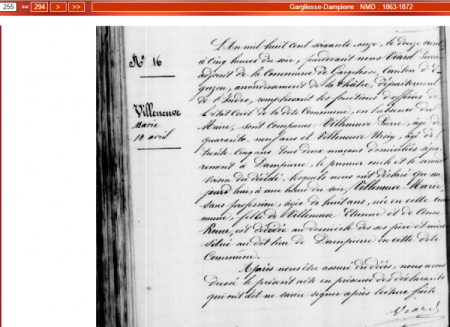 255 sur 294 > >> Gargilesse-Dampierre : NMD : 1863-1872
N° 16
Villeneuve
Marie
12 avril
L'An mil huit cent soixante-onze, le douze avril
à cinq heures du soir, pardevant nous Viard Pierre
adjoint de la Commune de Gargilesse, Canton d'E-
guzon, arrondissement de la Châtre, département
de l'Indre, remplissant les fonctions d'officier de
l'état Civil de la dite Commune, en l'absence du
Maire, sont comparus Villeneuve Pierre, âgé de
quarante-neuf ans et Villeneuve âgé de
trente-cinq ans tous deux maçons domiciliés sé-
parément à Dampierre, le premier oncle et le second
voisin du décédé, lesquels nous ont déclaré qu'au-
jourd'hui, à une heure du soir, Villeneuve Marie,
sans profession, âgée de huit ans, née en cette com-
mune, fille de Villeneuve Etienne et de Anne
est décédée au domicile de ses père et mère
situé au dit lieu de Dampierre en cette dite
Commune.
Après nous être assuré du décès, nous avons
dressé le présent acte en présence des déclarants
qui ont dit ne savoir signer après lecture faite
Viard